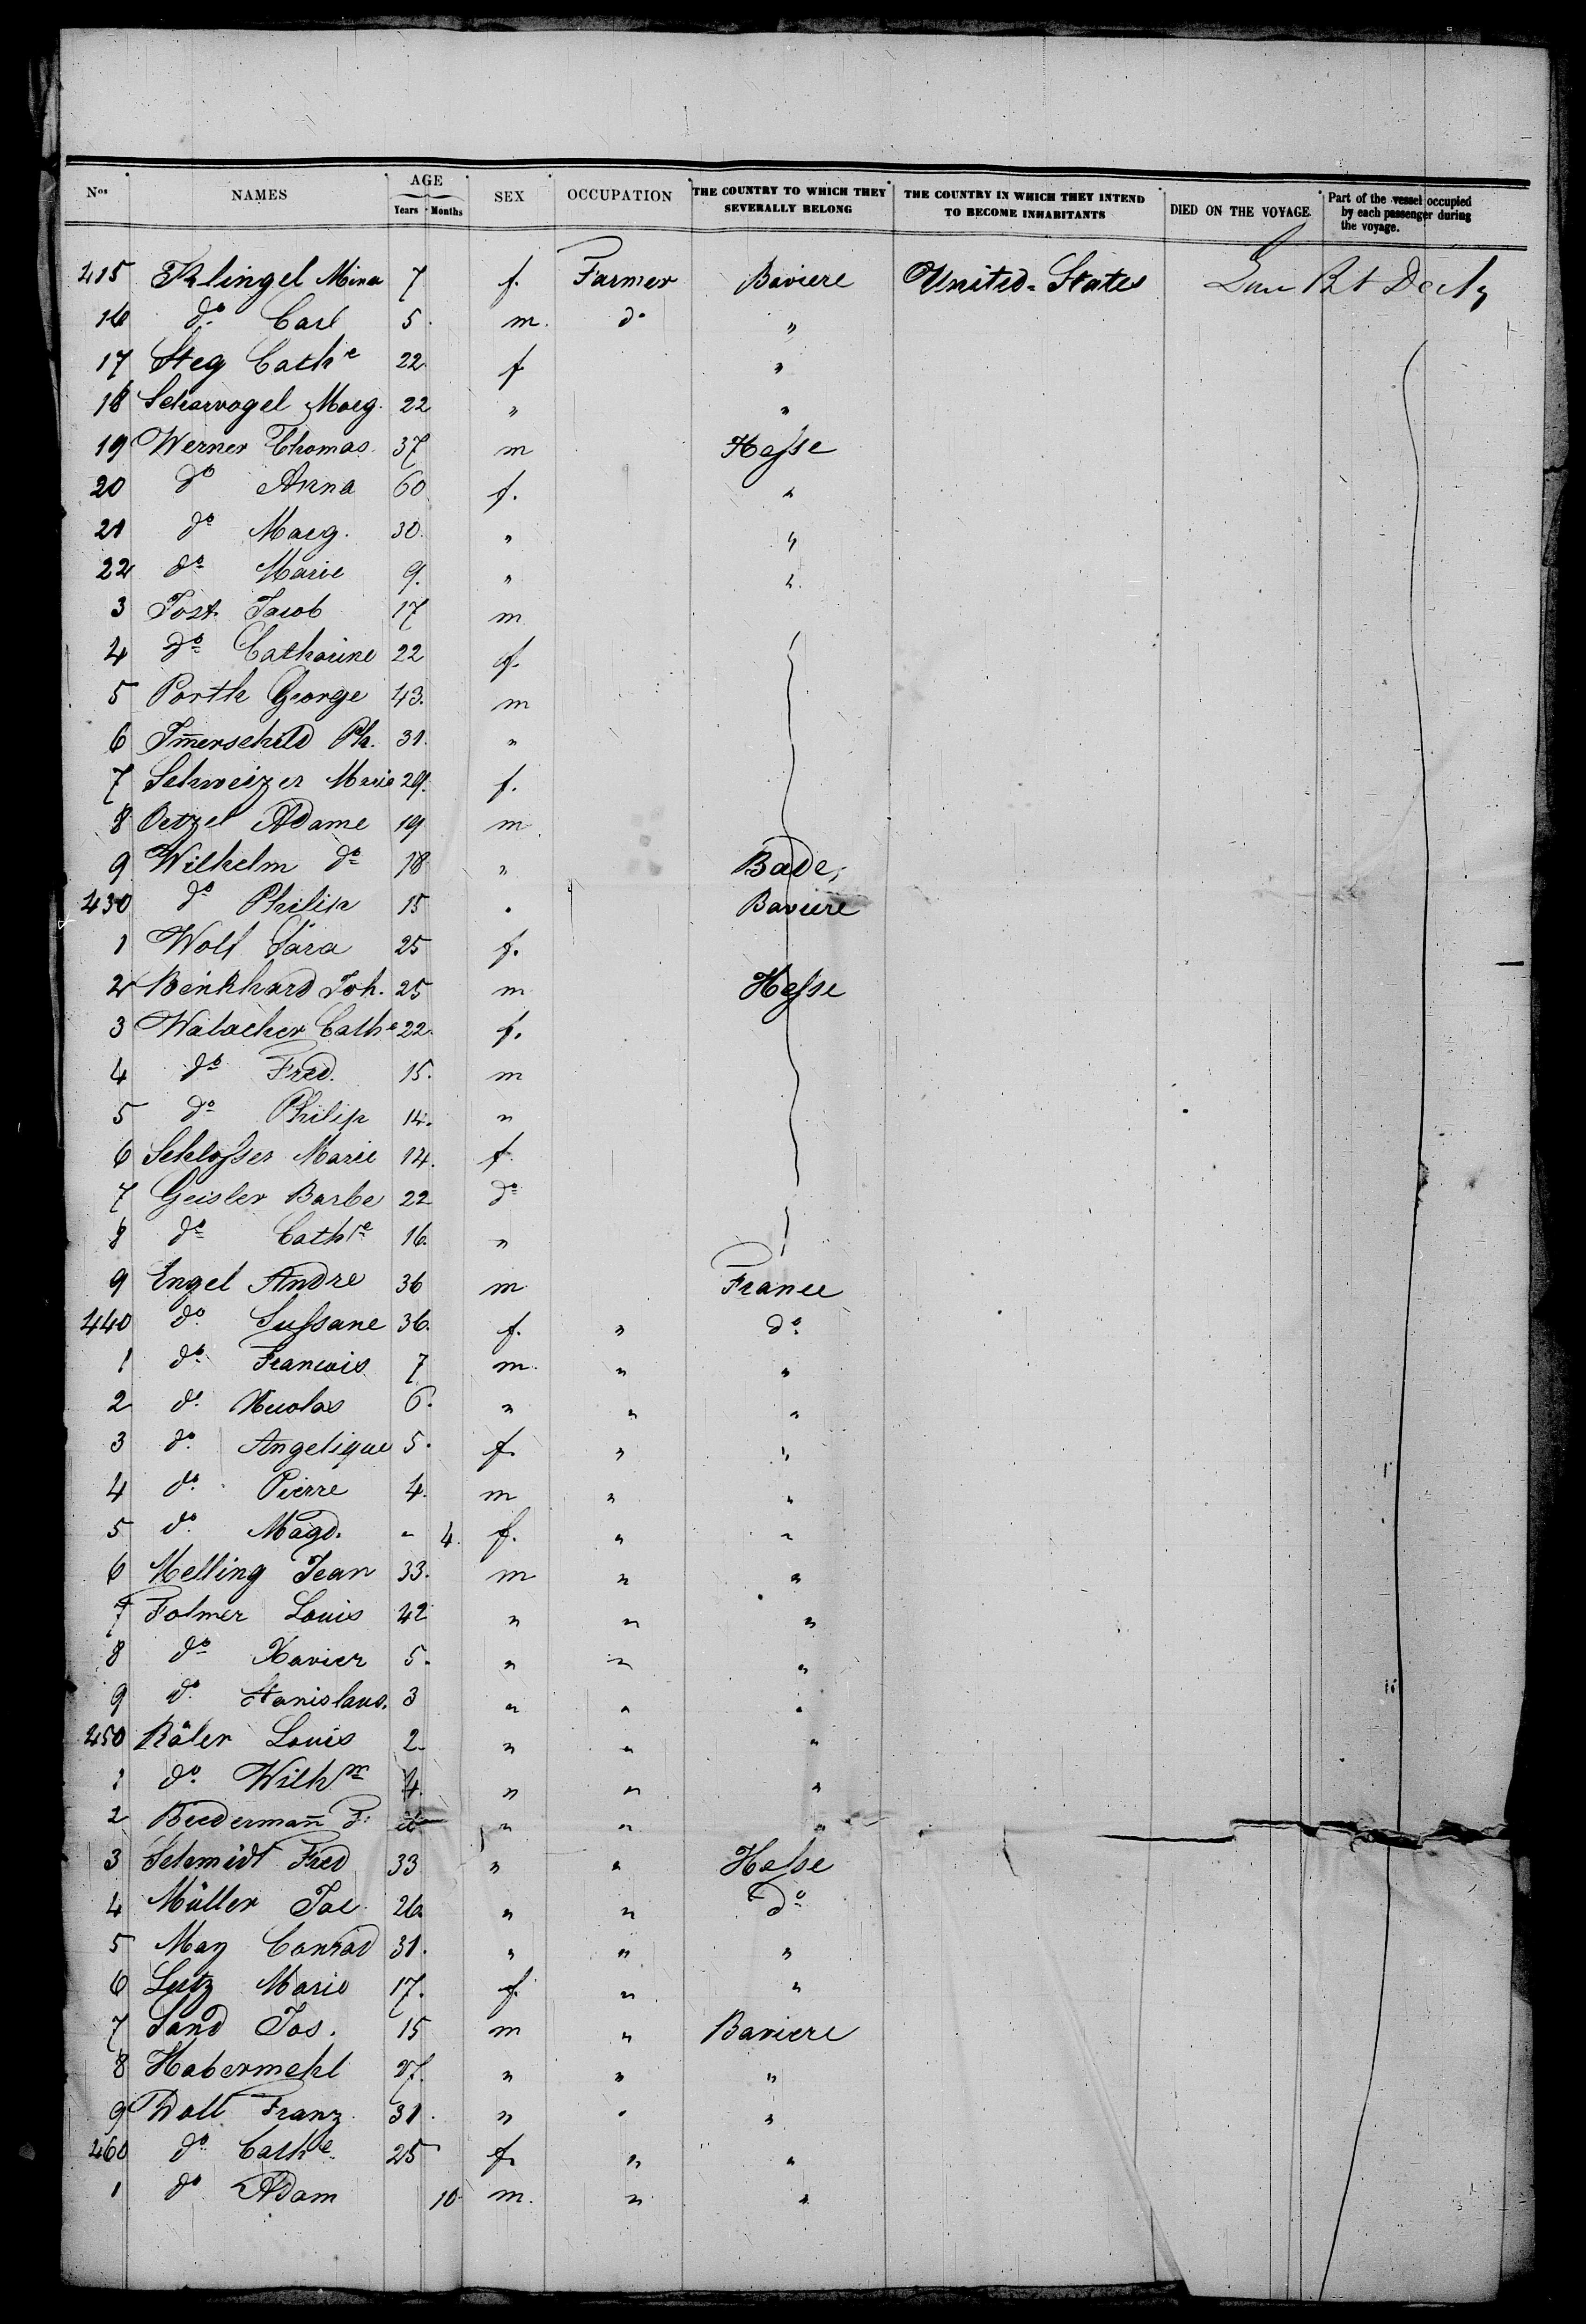 Nos NAMES AGE Years Months SEX OCCUPATION THE COUNTRY TO WHICH THEY SEVERALLY BELONG THE COUNTRY IN WHICH THEY INTEND TO BECOME INHABITANTS DIED ON THE VOYAGE Part of the vessel occupied by each passenger during the voyage.
415 Klingel Mina 7 f. Farmer Baviere United-States
16 do Carl 5. m. do "
17 Steg Cathe 22 f "
18 Scharvogel Marg. 22 " "
19 Werner Thomas 37 m Hesse
20 do Anna 60 f. "
21 do Marg. 30. " "
22 do Marie 9. " "
3 Jost Jacob 17 m
4 do Catharine 22 f.
5 Porth George 43. m
6 Im̄erschild Ph. 31. "
7 Schweizer Marie 29. f.
8 Oetzel Adame 19 m
9 Wilhelm do 18 " Bade,
430 do Philip 15 " Baviere
1 Wolf Sara 25 f.
2 Benkhard Joh. 25 m Hesse
3 Walacher Cathe 22. f.
4 do Fred. 15. m
5 do Philip 14. "
6 Schlosser Marie 14. f
7 Geisler Barbe 22 do
8 do Cathe 16. "
9 Engel Andre 36 m France
440 do Sussane 36. f. " do
1 do Francois 7 m. " "
2 do Nicolas 6. " " "
3 do Angelique 5. f. " "
4 do Pierre 4. m " "
5 do Magd. - 4. f. " "
6 Melling Jean 33. m " "
7 Folmer Louis 42 " " "
8 do Xavier 5. " " "
9 do Stanislaus. 3 " " "
450 Räler Louis 2. " " "
1 do Wilhm 4. " " "
2 Biederman̄ F. " " "
3 Schmidt Fred 33 " " Hesse
4 Müller Jac. 26. " " do
5 May Conrad 31. " " "
6 Lutz Marie 17. f. " "
7 Sand Jos. 15 m " Baviere
8 Habermehl 27. " " "
9 Woll Franz 31. " " "
460 do Cathe 25 f. " "
1 do Adam 10 m. " "